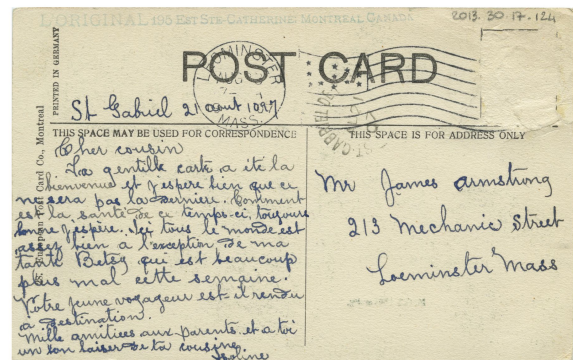 L'ORIGINAL 195 EST STE-CATHERINE, MONTREAL CANADA
2013.30.17.124
POST CARD
LEOMINSTER
MASS.
PRINTED IN GERMANY
European Post Card Co., Montreal
St Gabriel 21 aout
THIS SPACE MAY BE USED FOR CORRESPONDENCE
Cher cousin
La gentille carte a été la
bienvenue et j'espere bien que ce
ne sera pas la derniere. Comment
est la santé de ce temps-ci, toujours
bonne j'espère. Ici tous le monde est
assez bien a l'exception de ma
tante Betsy qui est beaucoup
plus mal cette semaine.
Votre jeune voyageur est-il rendu
a destination.
Mille amitiees aux parents et a toi
un bon baiser de ta cousine.
THIS SPACE IS FOR ADDRESS ONLY
Mr James armstrong
213 Mechanic Street
Loeminster Mass